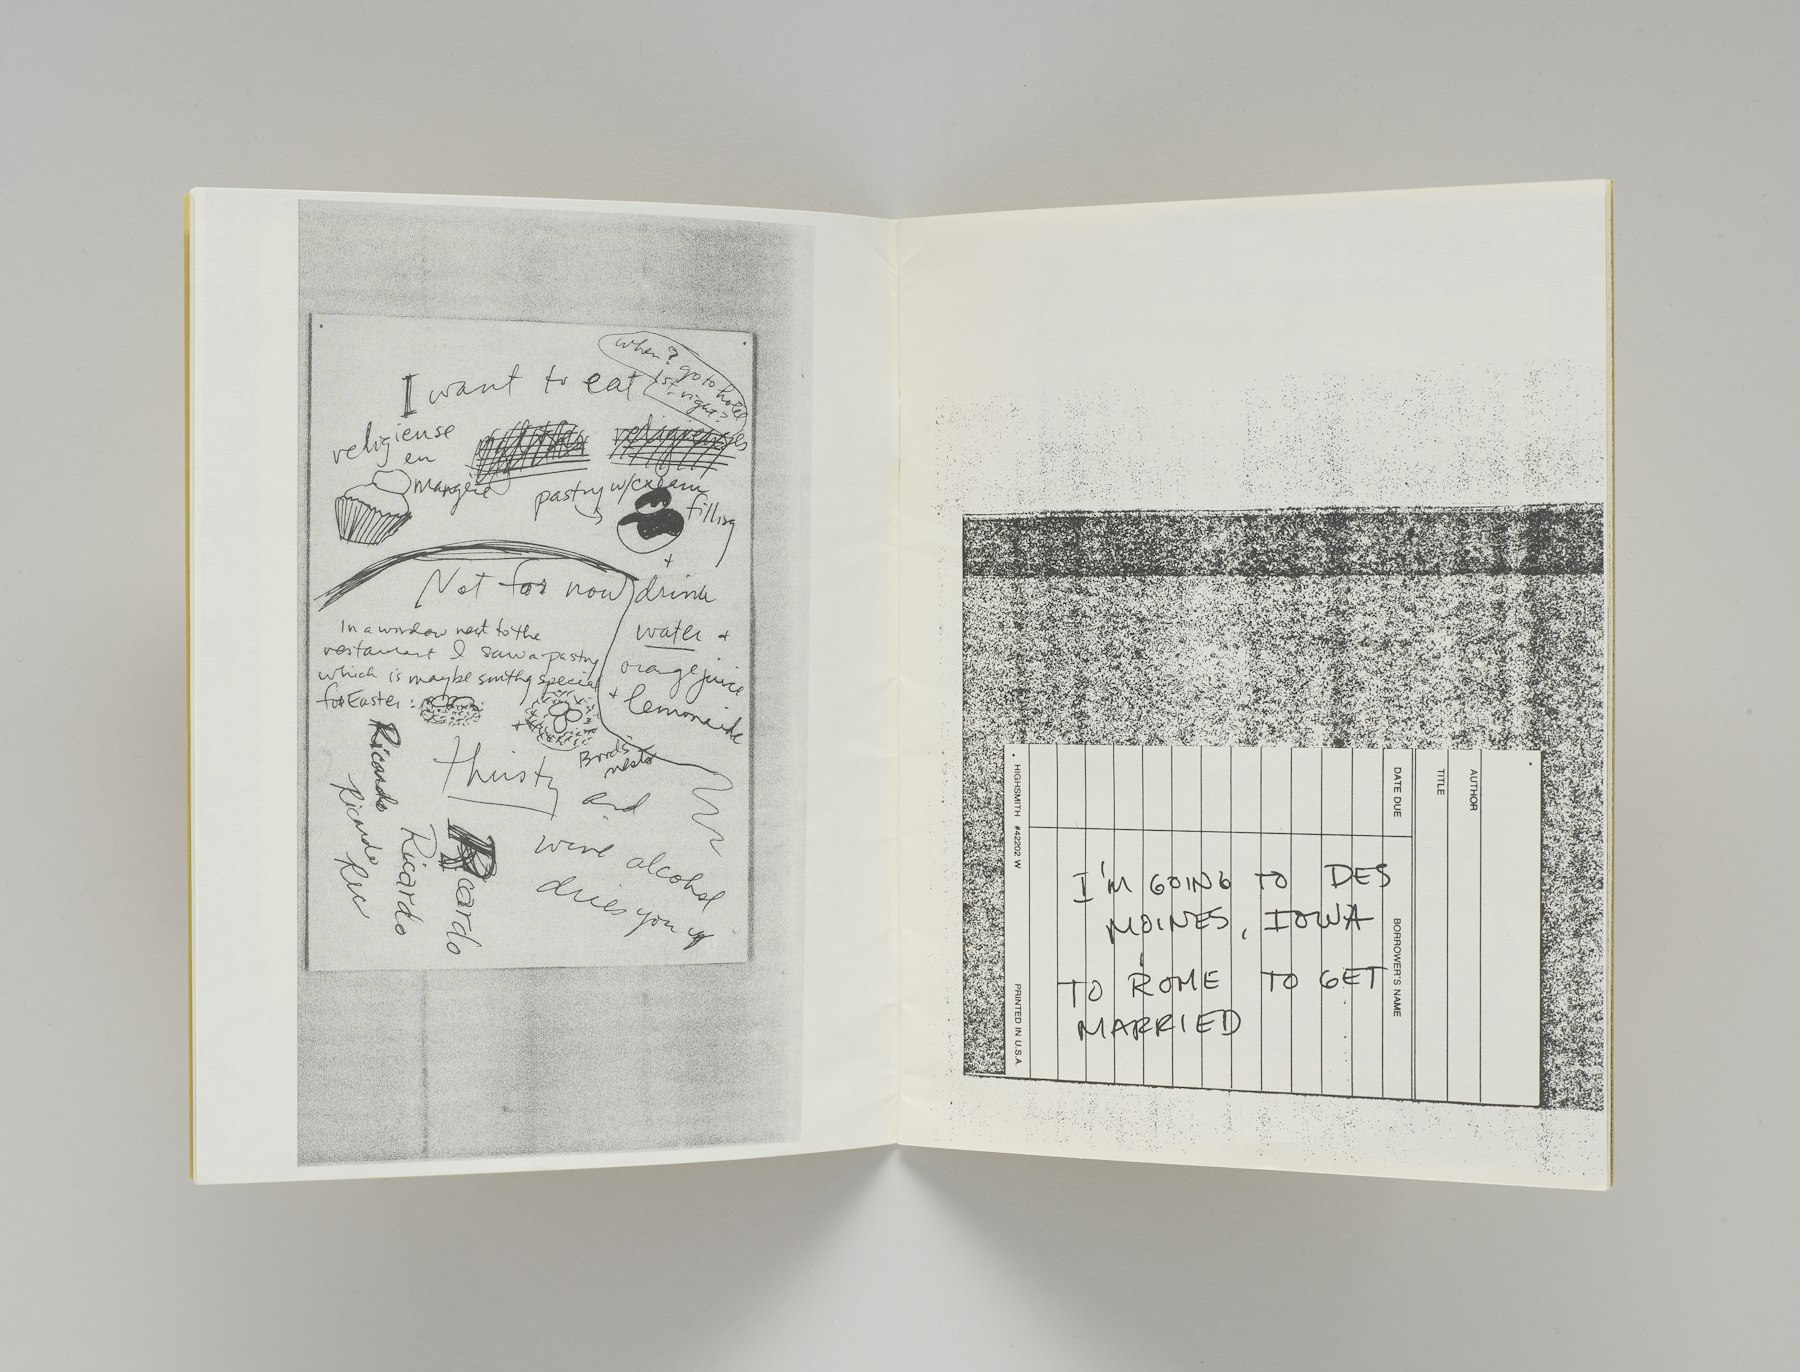 when?
go to hotel
1st, right?
I want to eat
religiense
en
mangeie
religieuses
pastry w/cream
filling
+
Not for now
drink
water +
orange juice
+ lemonade
In a window next to the
restaurant I saw a pastry
which is maybe smthg special
for Easter:
+
Bird's
nests
thirsty
and
wine alcohol
dries you up
Ricardo
Ricardo
Ric
Ricardo
Ricardo
AUTHOR
TITLE
DATE DUE
BORROWER'S NAME
I'M GOING TO DES
MOINES, IOWA
TO ROME TO GET
MARRIED
HIGHSMITH #42202 W
PRINTED IN U.S.A.